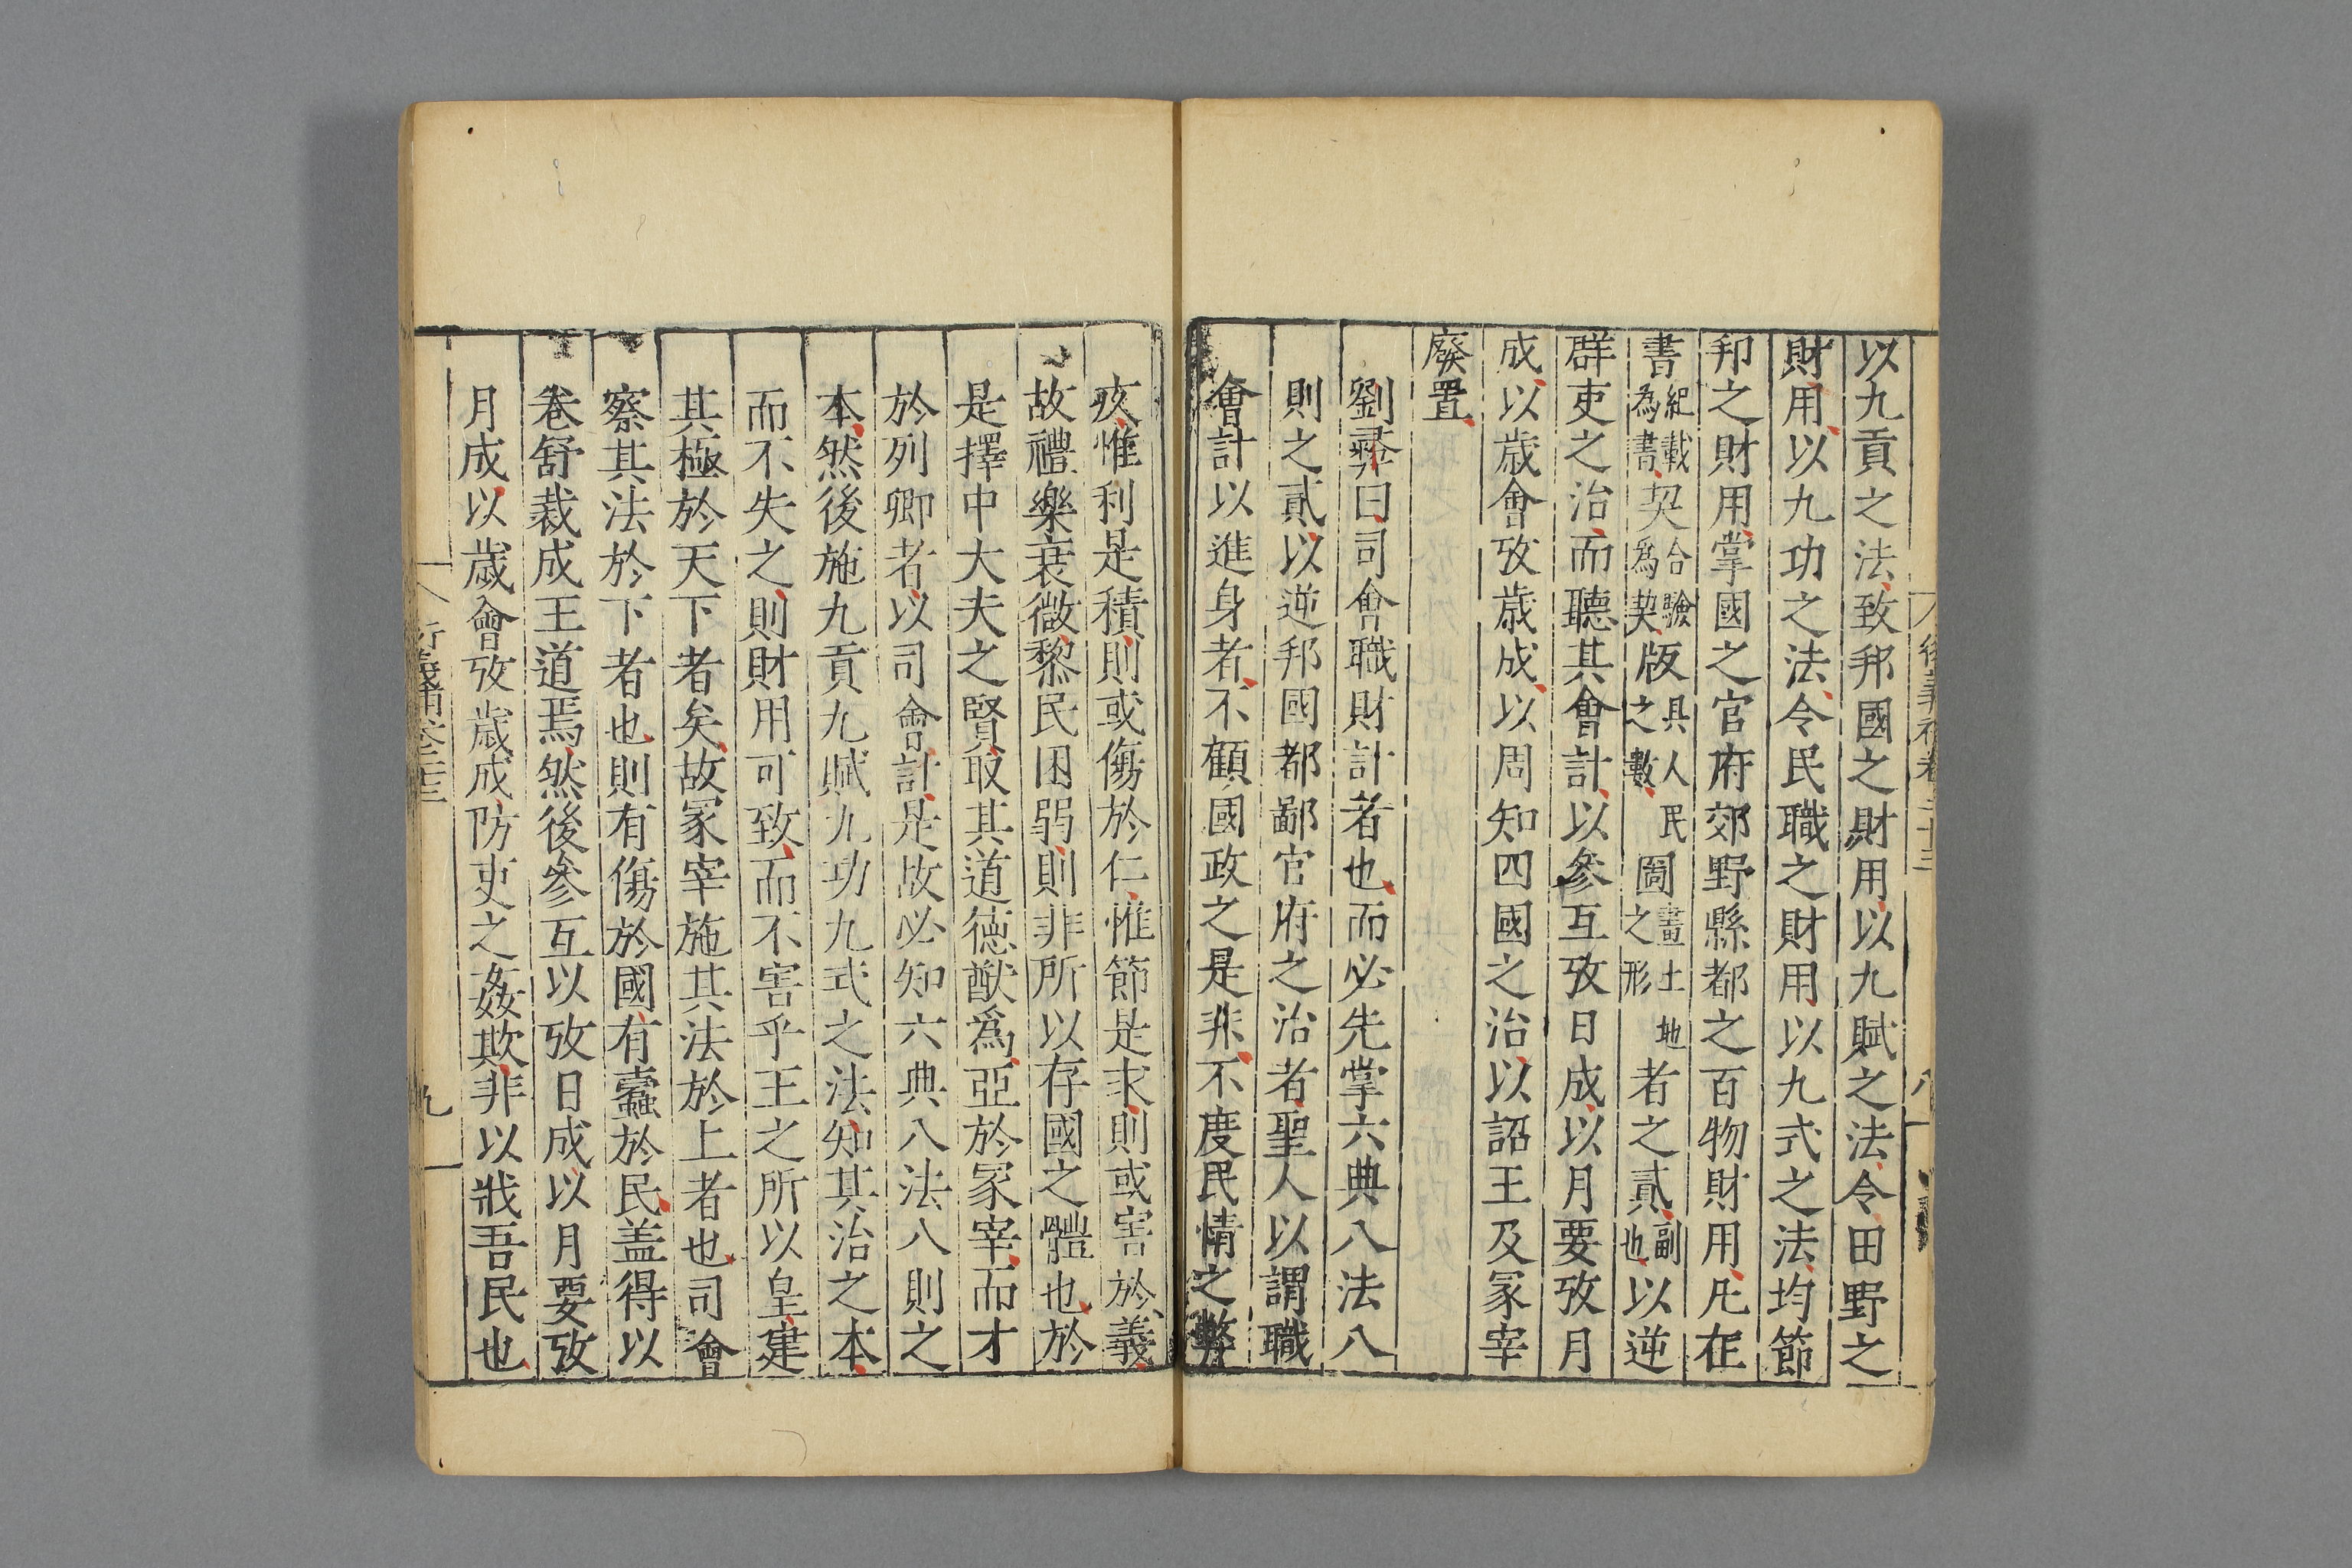 以九貢之法致邦國之財用以九賦之法令田野之
財用以九功之法令民職之財用以九式之法均節
邦之財用掌國之官府郊野縣都之百物財用凡在
書紀載為書契合驗為契版具人民之數圖畫土地之形者之貳副也以逆
群吏之治而聽其會計以參互攷日成以月要攷月
成以歲會攷歲成以周知四國之治以詔王及冢宰
廢置
劉彞曰司會職財計者也而必先掌六典八法八
則之貳以逆邦國都鄙官府之治者聖人以謂職
會計以進身者不顧國政之是非不度民情之弊
疚惟利是積則或傷於仁惟節是求則或害於義
故禮樂衰微黎民困弱則非所以存國之體也於
是擇中大夫之賢取其道德猷爲亞於冢宰而才
於列卿者以司會計是故必知六典八法八則之
本然後施九貢九賦九功九式之法知其治之本
而不失之則財用可致而不害乎王之所以皇建
其極於天下者矣故冢宰施其法於上者也司會
察其法於下者也則有傷於國有蠹於民盖得以
卷舒裁成王道焉然後參互以攷日成以月要攷
月成以歲會攷歲成防吏之姦欺非以戕吾民也
九